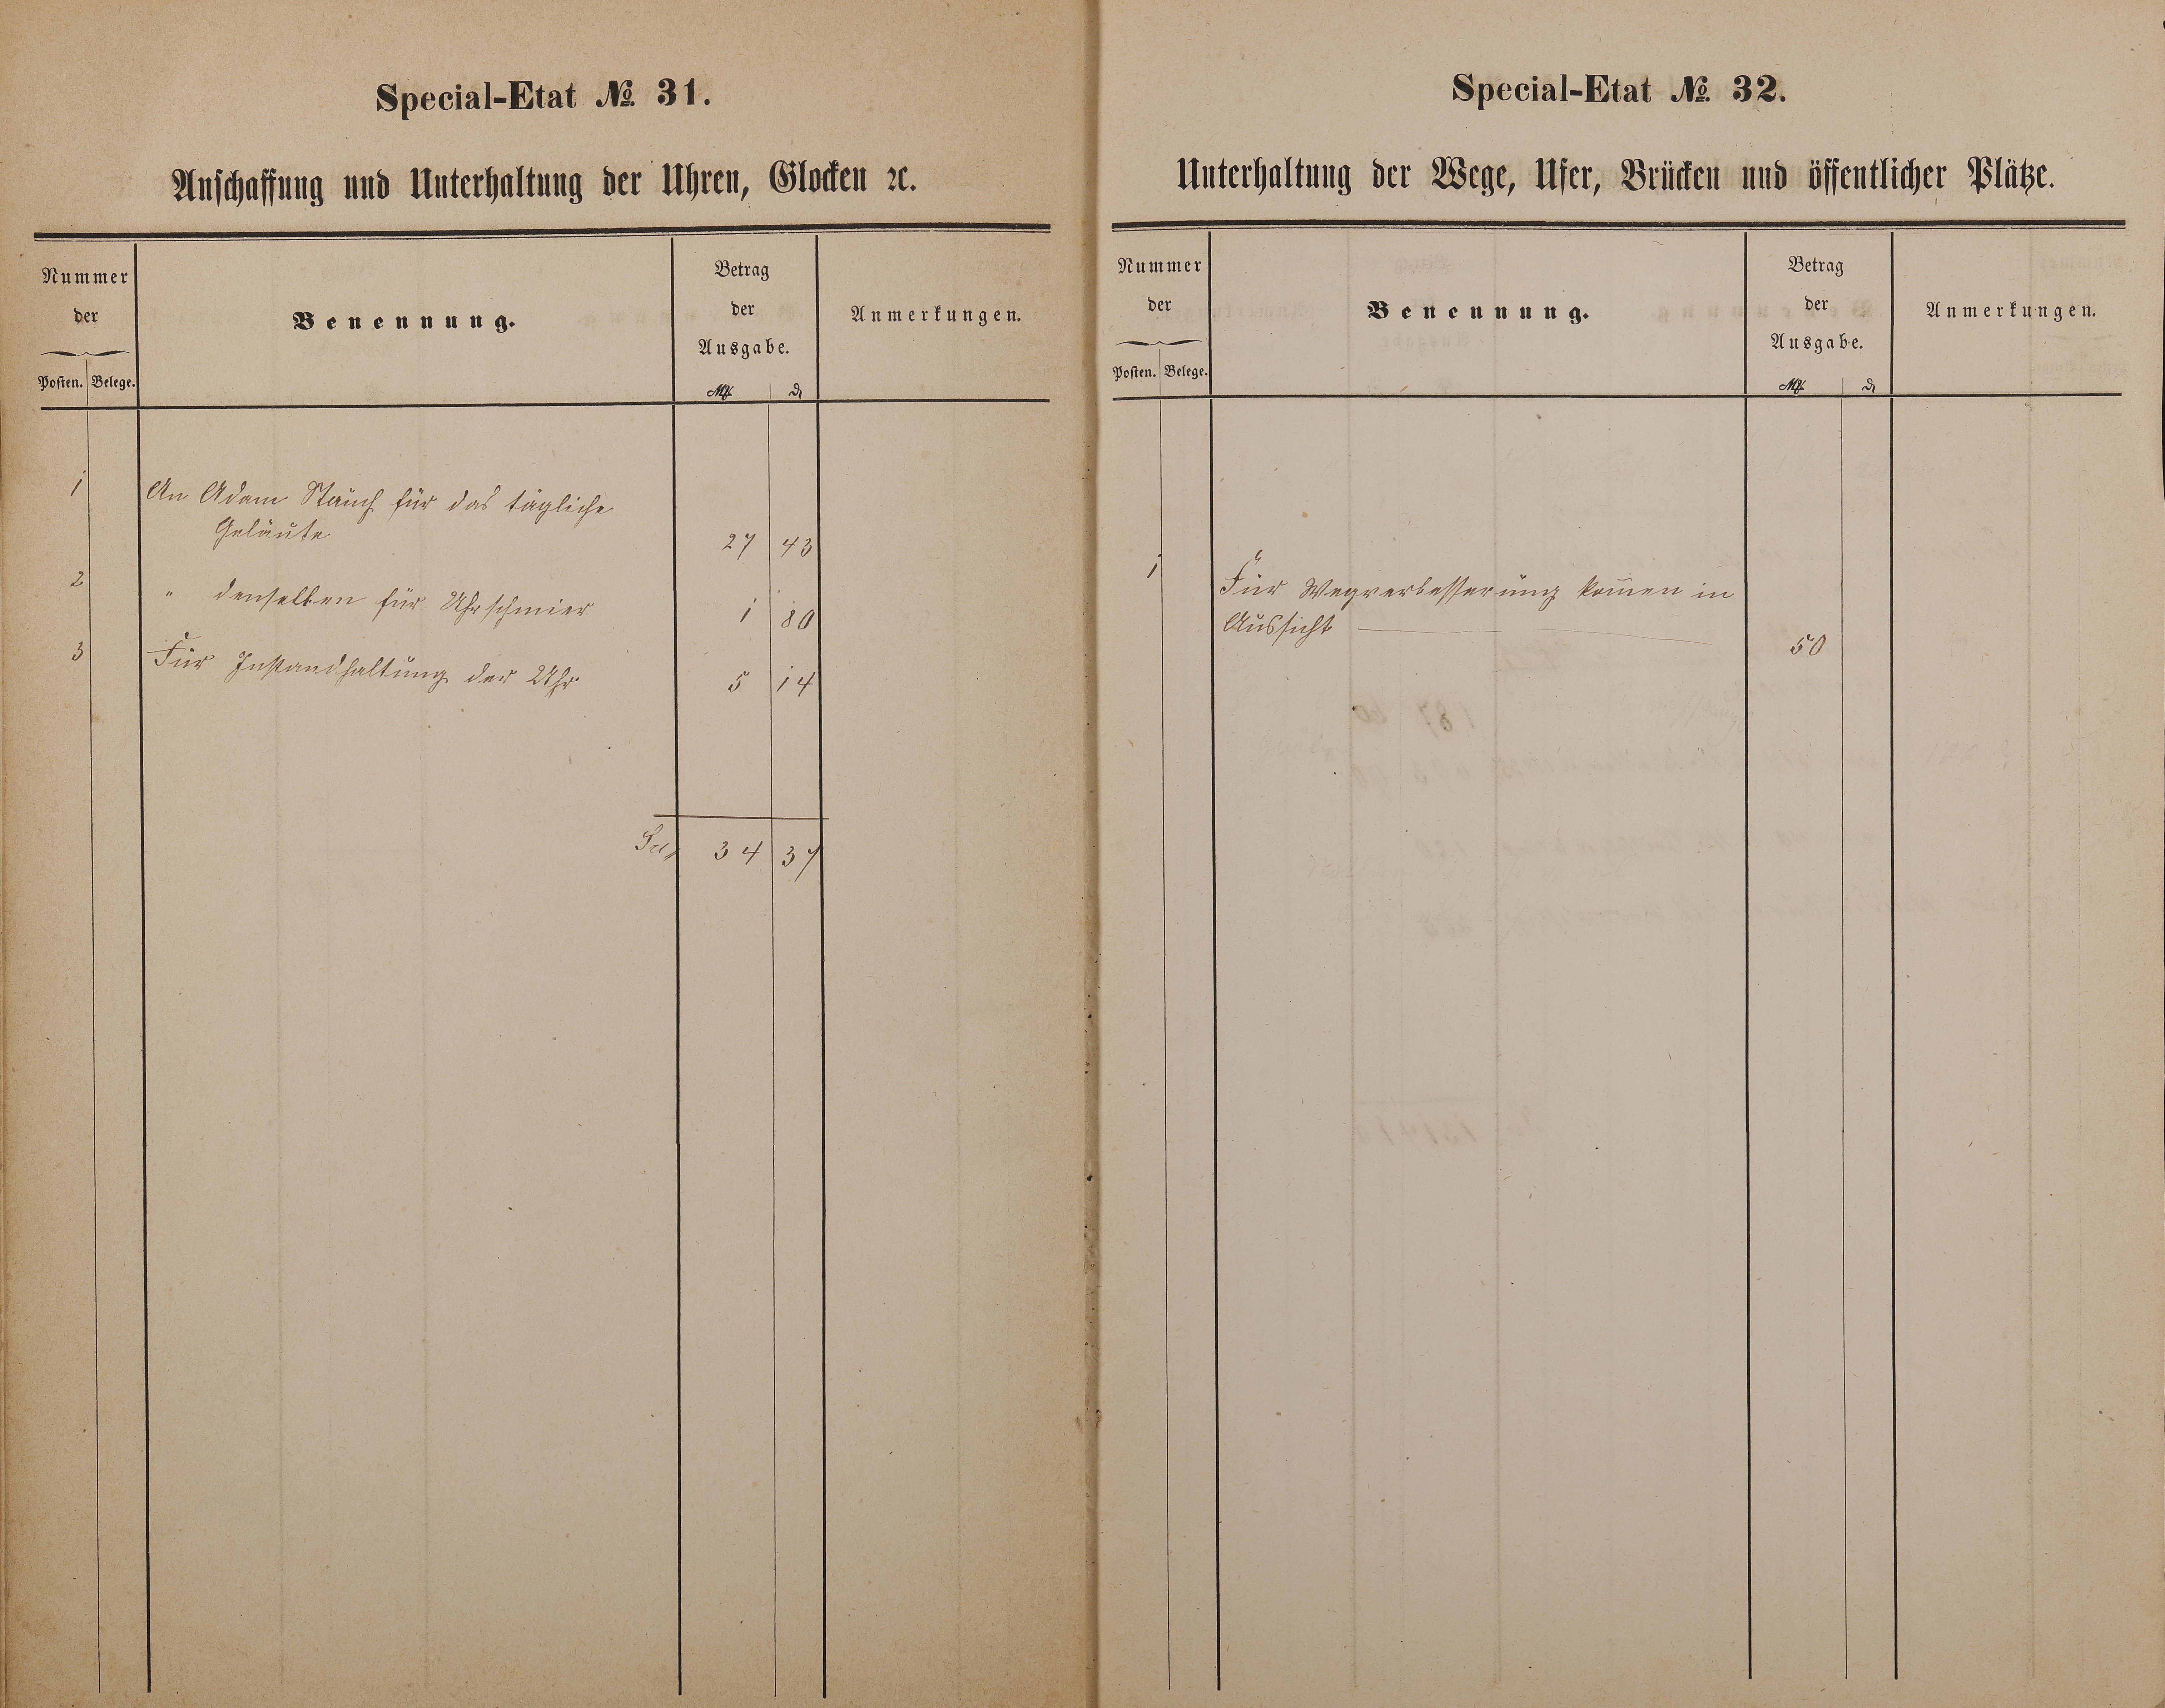 Special-Etat № 31.
Anschaffung und Unterhaltung der Uhren, Glocken ꝛc.
Nummer
der
Posten. Belege.
Benennung.
Betrag
der
Ausgabe.
ℳ ₰
Anmerkungen.
1 An Adam Stauch für das tägliche
Geläute 27 43
2 " denselben für Uhrschmier 1 80
3 Für Instandhaltung der Uhr 5 14
34 37
Special-Etat № 32.
Unterhaltung der Wege, Ufer, Brücken und öffentlicher Plätze.
Nummer
der
Posten. Belege.
Benennung.
Betrag
der
Ausgabe.
ℳ ₰
Anmerkungen.
1 Für Wegverbesserung kom̅en in
Aussicht 50